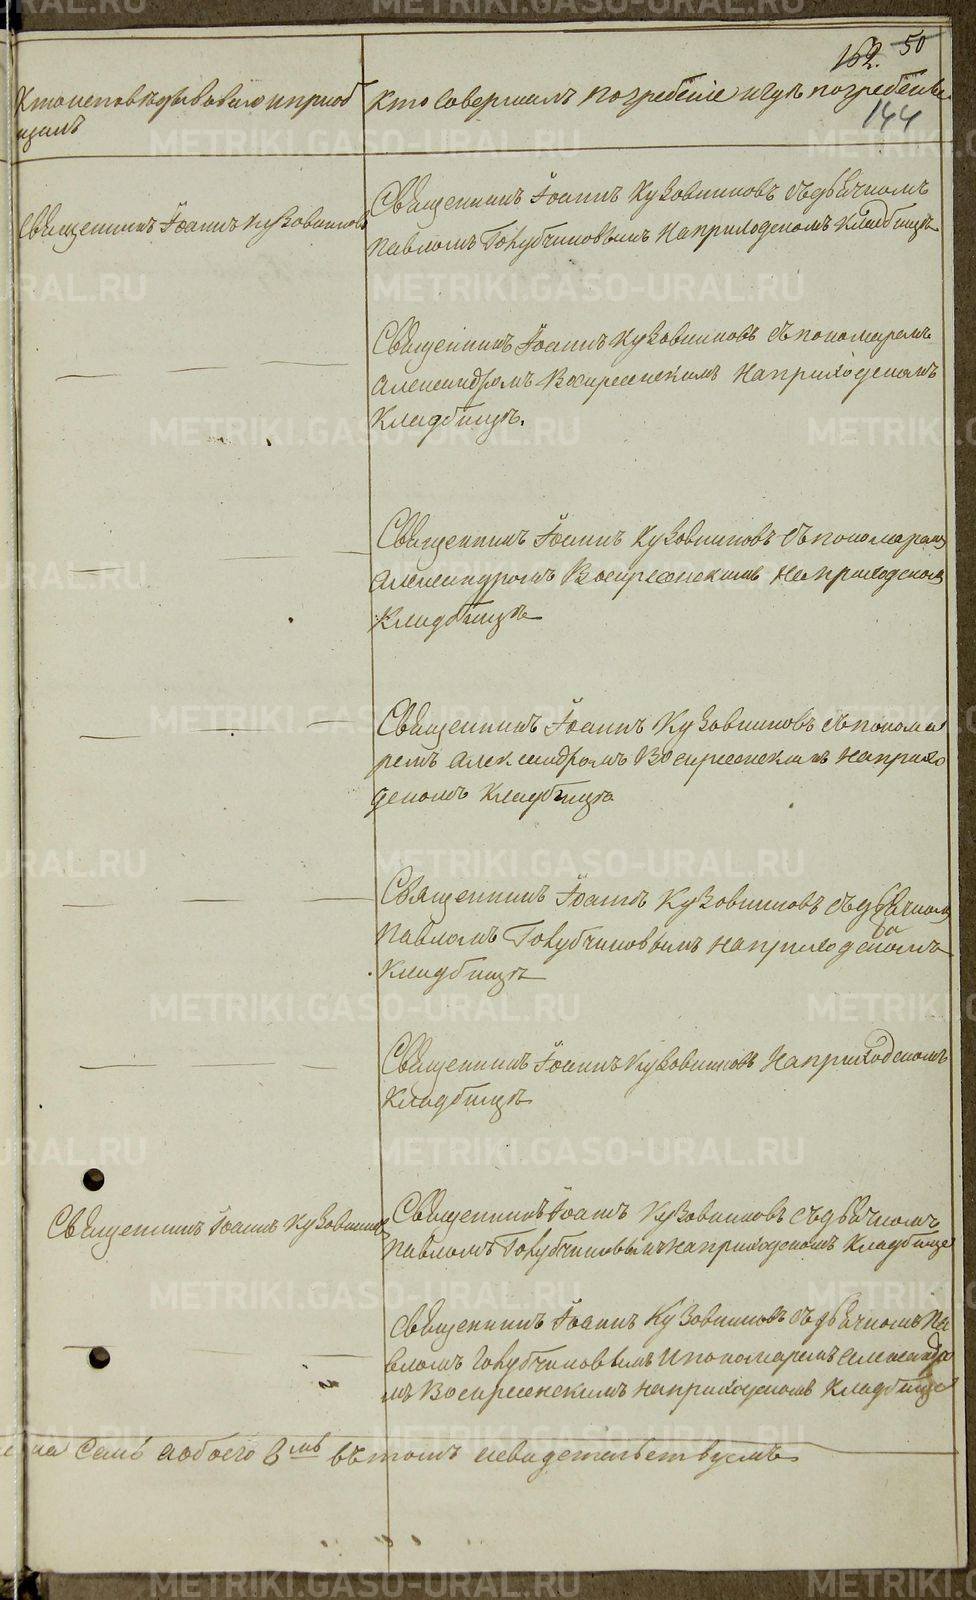 162. 50
144
Кто исповѣдывовалъ и приоб
щалъ
Кто Совершалъ погребенiе и гдѣ погребены
Священникъ Іоаннъ Кузовниковъ
Священникъ Іоаннъ Кузовниковъ съ дьячкомъ
Павломъ Голубчиковымъ на приходскомъ Кладбищѣ
Священникъ Іоаннъ Кузовниковъ съ пономаремъ
Александромъ Воскресенскимъ на приходскомъ
Кладбищѣ.
Священникъ Іоаннъ Кузовниковъ съ пономаремъ
Александромъ Воскресенскимъ на приходскомъ
Кладбищѣ
Священникъ Іоаннъ Кузовниковъ съ понома
ремъ Александромъ Воскресенскимъ на прихо
дскомъ Кладбищѣ
Священникъ Іоаннъ Кузовниковъ съ дьячкомъ
Павломъ Голубчиковымъ на приходскомъ
Кладбищѣ
Священникъ Іоаннъ Кузовниковъ на приходскомъ
Кладбищѣ
Священникъ Іоаннъ Кузовниковъ
Священникъ Іоаннъ Кузовниковъ съ дьячкомъ
Павломъ Голубчиковымъ на приходскомъ Кладбище
Священникъ Іоаннъ Кузовниковъ съ дьячкомъ Па
вломъ Голубчиковымъ и пономаремъ Александро
мъ Воскресенскимъ на приходскомъ Кладбище
Семь а обоего въ томъ свидетельствуемъ
METRIKI.GASO-URAL.RU